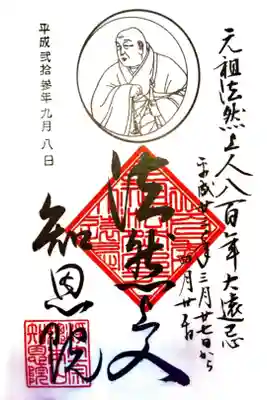 元祖法然上人八百年大遠忌
平成廿三年三月廿七日から
四月廿五日
法然上人
知恩院
平成貳拾參年九月八日
知恩院